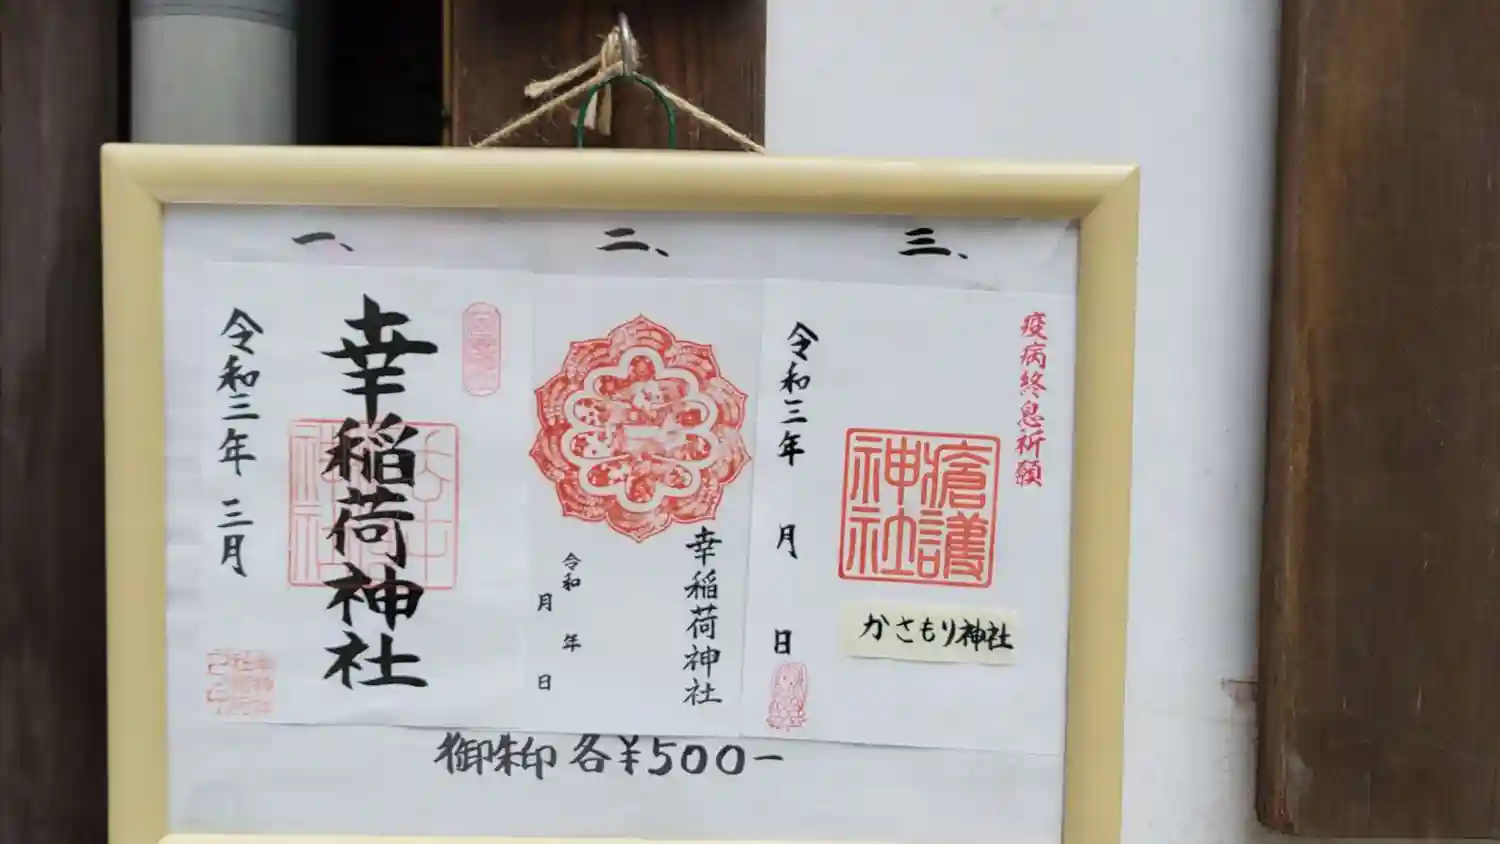 一、
幸稲荷神社
令和三年 三月
二、
幸稲荷神社
令和 年
月 日
三、
疫病終息祈願
瘡護神社
かさもり神社
令和三年 月 日
御朱印 各¥500ー